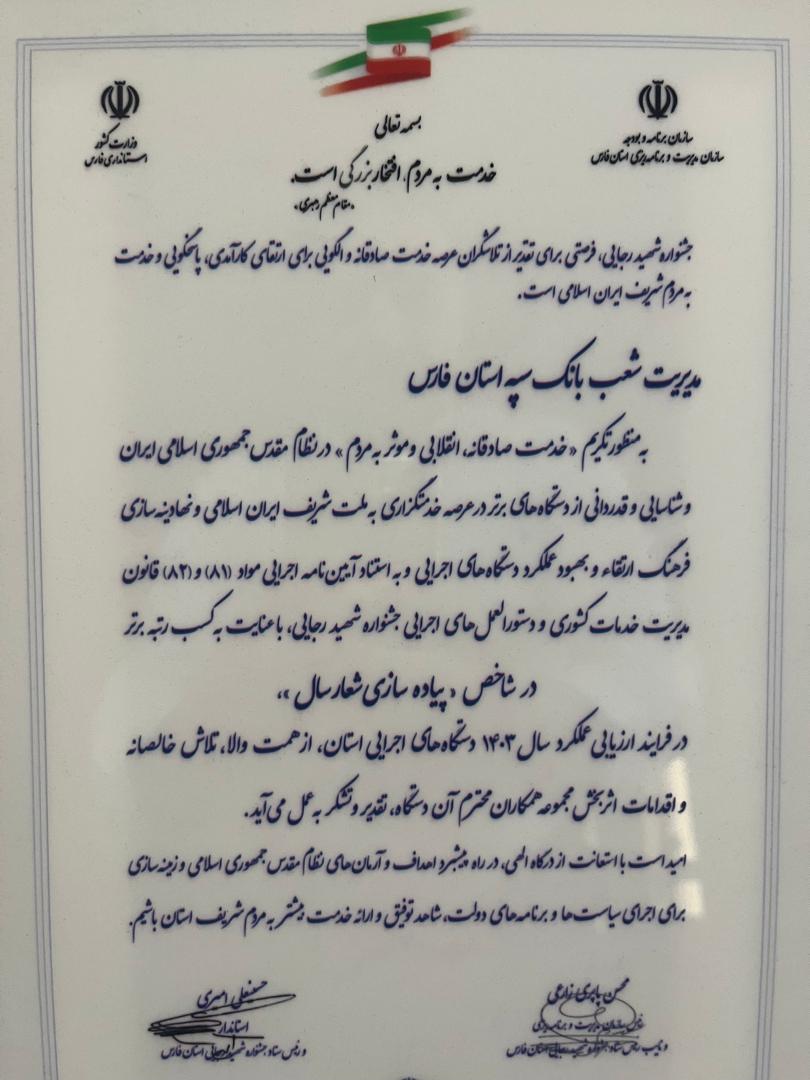 بسمه تعالی
سازمان برنامه و بودجه
سازمان مدیریت و برنامه‌ریزی استان فارس
وزارت کشور
استانداری فارس
خدمت به مردم، افتخار بزرگی است.
«مقام معظم رهبری»
جشنواره شهید رجایی، فرصتی برای تقدیر از تلاشگران عرصه خدمت صادقانه و الگویی برای ارتقای کارآمدی، پاسخگویی و خدمت
به مردم شریف ایران اسلامی است.
مدیریت شعب بانک سپه استان فارس
به منظور تکریم «خدمت صادقانه، انقلابی و موثر به مردم» در نظام مقدس جمهوری اسلامی ایران
و شناسایی و قدردانی از دستگاه های برتر در عرصه خدمتگزاری به ملت شریف ایران اسلامی و نهادینه سازی
فرهنگ ارتقاء و بهبود عملکرد دستگاه های اجرایی و به استناد آیین نامه اجرایی مواد (۸۱) و (۸۲) قانون
مدیریت خدمات کشوری و دستورالعمل های اجرایی جشنواره شهید رجایی، با عنایت به کسب رتبه برتر
در شاخص «پیاده سازی شعار سال»،
در فرایند ارزیابی عملکرد سال ۱۴۰۳ دستگاه های اجرایی استان، از همت والا، تلاش خالصانه
و اقدامات اثربخش مجموعه همکاران محترم آن دستگاه، تقدیر و تشکر به عمل می آید.
امید است با استعانت از درگاه الهی، در راه پیشبرد اهداف و آرمان های نظام مقدس جمهوری اسلامی و زمینه سازی
برای اجرای سیاست ها و برنامه های دولت، شاهد توفیق و ارائه خدمت بیشتر به مردم شریف استان باشیم.
محسن پابری زارعی
سازمان مدیریت و برنامه ریزی
و نایب رئیس ستاد جشنواره شهید رجایی استان فارس
حسینعلی امیری
استاندار
و رئیس ستاد جشنواره شهید رجایی استان فارس